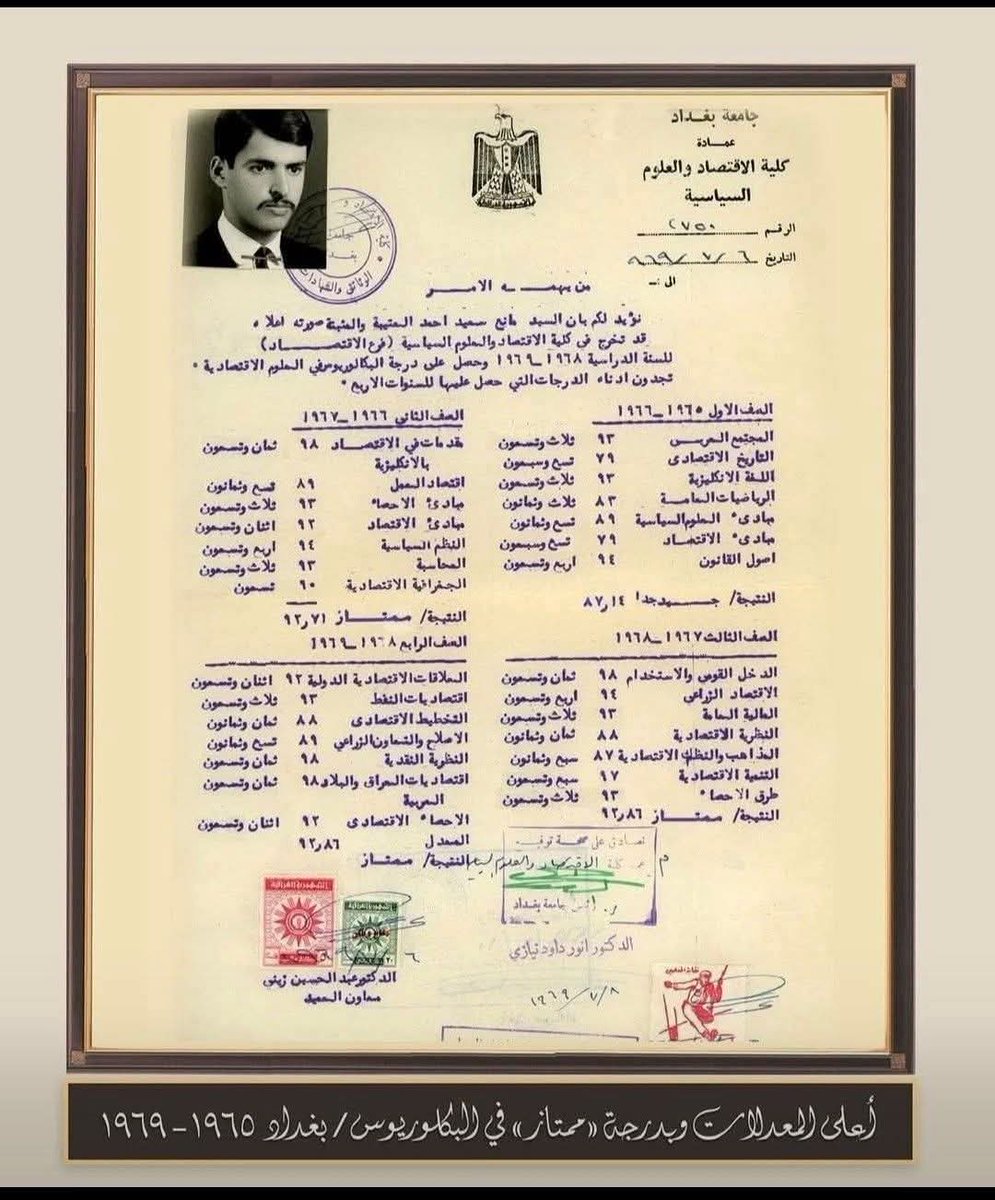 جامعة بغداد
عمادة
كلية الاقتصاد والعلوم
السياسية
الرقم ٢٧٥٠
التاريخ ٩٦٩/٧/٦
الى :ـ
من يهمـــه الامـــر
نؤيد لكم بان السيد مانع سعيد احمد العتيبة والمثبتة صورته اعلاه
قد تخرج في كلية الاقتصاد والعلوم السياسية (فرع الاقتصـــاد)
للسنة الدراسية ١٩٦٨ــ١٩٦٩ وحصل على درجة البكالوريوس في العلوم الاقتصادية ٠
تجدون ادناه الدرجات التي حصل عليها للسنوات الاربع ٠
الصف الاول ١٩٦٥ــ١٩٦٦
المجتمع العربي ٩٣ ثلاث وتسعون
التاريخ الاقتصادى ٧٩ تسع وسبعون
اللغة الانكليزية ٩٣ ثلاث وتسعون
الرياضيات العامة ٨٣ ثلاث وثمانون
مبادىء العلوم السياسية ٨٩ تسع وثمانون
مبادىء الاقتصاد ٧٩ تسع وسبعون
اصول القانون ٩٤ اربع وتسعون
النتيجة/ جـــيد جدا ٨٧٫١٤
الصف الثاني ١٩٦٦ــ١٩٦٧
مقدمات في الاقتصاد ٩٨ ثمان وتسعون
بالانكليزية
اقتصاد العمل ٨٩ تسع وثمانون
مبادئ الاحصاء ٩٣ ثلاث وتسعون
مبادئ الاقتصاد ٩٢ اثنان وتسعون
النظم السياسية ٩٤ اربع وتسعون
المحاسبة ٩٣ ثلاث وتسعون
الجغرافية الاقتصادية ٩٠ تسعون
النتيجة/ ممتـــاز ٩٢٫٧١
الصف الثالث ١٩٦٧ــ١٩٦٨
الدخل القومي والاستخدام ٩٨ ثمان وتسعون
الاقتصاد الزراعي ٩٤ اربع وتسعون
المالية العامة ٩٣ ثلاث وتسعون
النظرية الاقتصادية ٨٨ ثمان وثمانون
المذاهب والنظم الاقتصادية ٨٧ سبع وثمانون
التنمية الاقتصادية ٩٧ سبع وتسعون
طرق الاحصاء ٩٣ ثلاث وتسعون
النتيجة/ ممتـــاز ٩٢٫٨٦
الصف الرابع ١٩٦٨ــ١٩٦٩
العلاقات الاقتصادية الدولية ٩٢ اثنان وتسعون
اقتصاديات النفط ٩٣ ثلاث وتسعون
التخطيط الاقتصادى ٨٨ ثمان وثمانون
الاصلاح والتعاون الزراعي ٨٩ تسع وثمانون
النظرية النقدية ٩٨ ثمان وتسعون
اقتصاديات العراق والبلاد ٩٨ ثمان وتسعون
العربية
الاحصاء الاقتصادى ٩٢ اثنان وتسعون
المعدل ٩٢٫٨٦
النتيجة/ ممتاز
نصادق على صحة توقيع
كلية الاقتصاد والعلوم
جامعة بغداد
الدكتور انور داود نيازي
١٩٦٩/٧/٨
الدكتور عبد الحسين زيني
معاون العميد
أعلى المعدلات وبدرجة «ممتاز» في البكالوريوس / بغداد ١٩٦٥-١٩٦٩